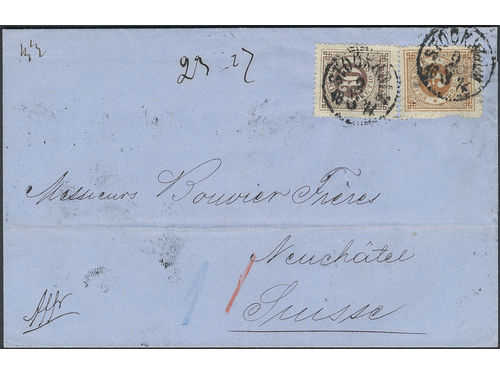 23-27
STOCKHOLM
STOCKHOLM
Messieurs Bouvier Frères
Neuchâtel
Suisse